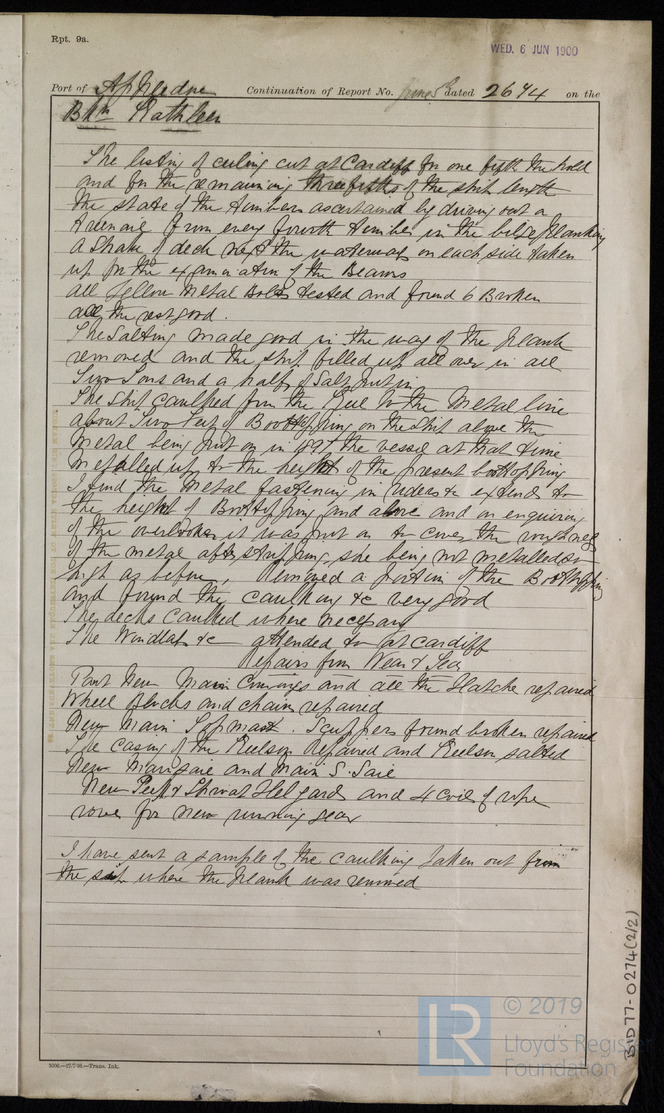 Rpt. 9a.
WED. 6 JUN 1900
Port of Appledore Continuation of Report No. June 5th dated 2674 on the
Bkn Kathleen
The listing of ceiling cut at Cardiff for one fifth the hold
and for the remaining three fifths of the ship length
the state of the timbers ascertained by driving out a
treenail from every fourth timber in the bilge planking
a strake of deck next the waterway on each side taken
up for the examination of the Beams
all Yellow Metal Bolts tested and found 6 Broken
all the rest good.
The Salting made good in the way of the plank
removed and the ship filled up all over in all
Two Tons and a half of Salt put in
The ship caulked from the Keel to the Metal line
about Two Feet of Boottopping on the ship above the
Metal being put on in the vessel at that time
Metalled up to the height of the present boottopping
I find the Metal fastening in rudders &c extends to
the height of Boottopping and above and on enquiring
of the overlooker it was put on to cover the roughness
of the metal after stripping, she being not metalled so
high as before, Removed a portion of the Boottopping
and found the caulking &c very good
The decks caulked where necessary
The Windlass &c attended to at Cardiff
Repairs from Wear & Tear
Part New Main Coamings and all the Hatches repaired
Wheel blocks and chain repaired
New Main Topmast. Scuppers found broken repaired
The casing of the Keelson repaired and Keelson salted
New Mainsail and Main S. Sail
New Peak & Throat Halyards and 4 coils of rope
rove for new running gear
I have sent a sample of the caulking taken out from
the side where the plank was removed
5000.—17/7/98.—Trans. Ink.
BID77-0274(2/2)
LR
© 2019
Lloyd's Register
Foundation